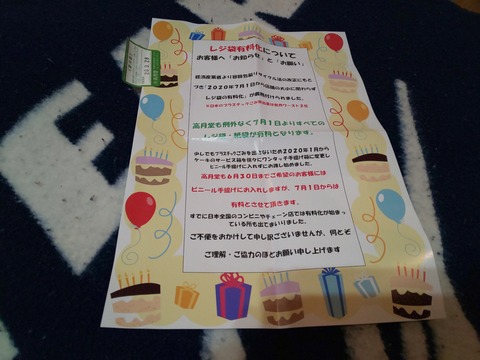 レジ袋有料化について
お客様へ「お知らせ」と「お願い」
経済産業省より容器包装リサイクル法の改正にもと
づき「2020年7月1日から店舗の大小に関わらず
レジ袋の有料化」が義務付けられました。
高月堂も例外なく7月1日よりすべての
レジ袋・紙袋が有料となります。
少しでもプラスチックごみを出さないため2020年1月から
ケーキのサービス箱を徐々にワンタッチ手提げ箱に変更し
ビニール手提げに入れずにお渡し始めました。
高月堂も6月30日までご希望のお客様には
ビニール手提げにお入れしますが、7月1日からは
有料とさせて頂きます。
すでに日本全国のコンビニやチェーン店では有料化が始まっ
ている所も出てまいりました。
ご不便をおかけして申し訳ございませんが、何とぞ
ご理解・ご協力のほどお願い申し上げます